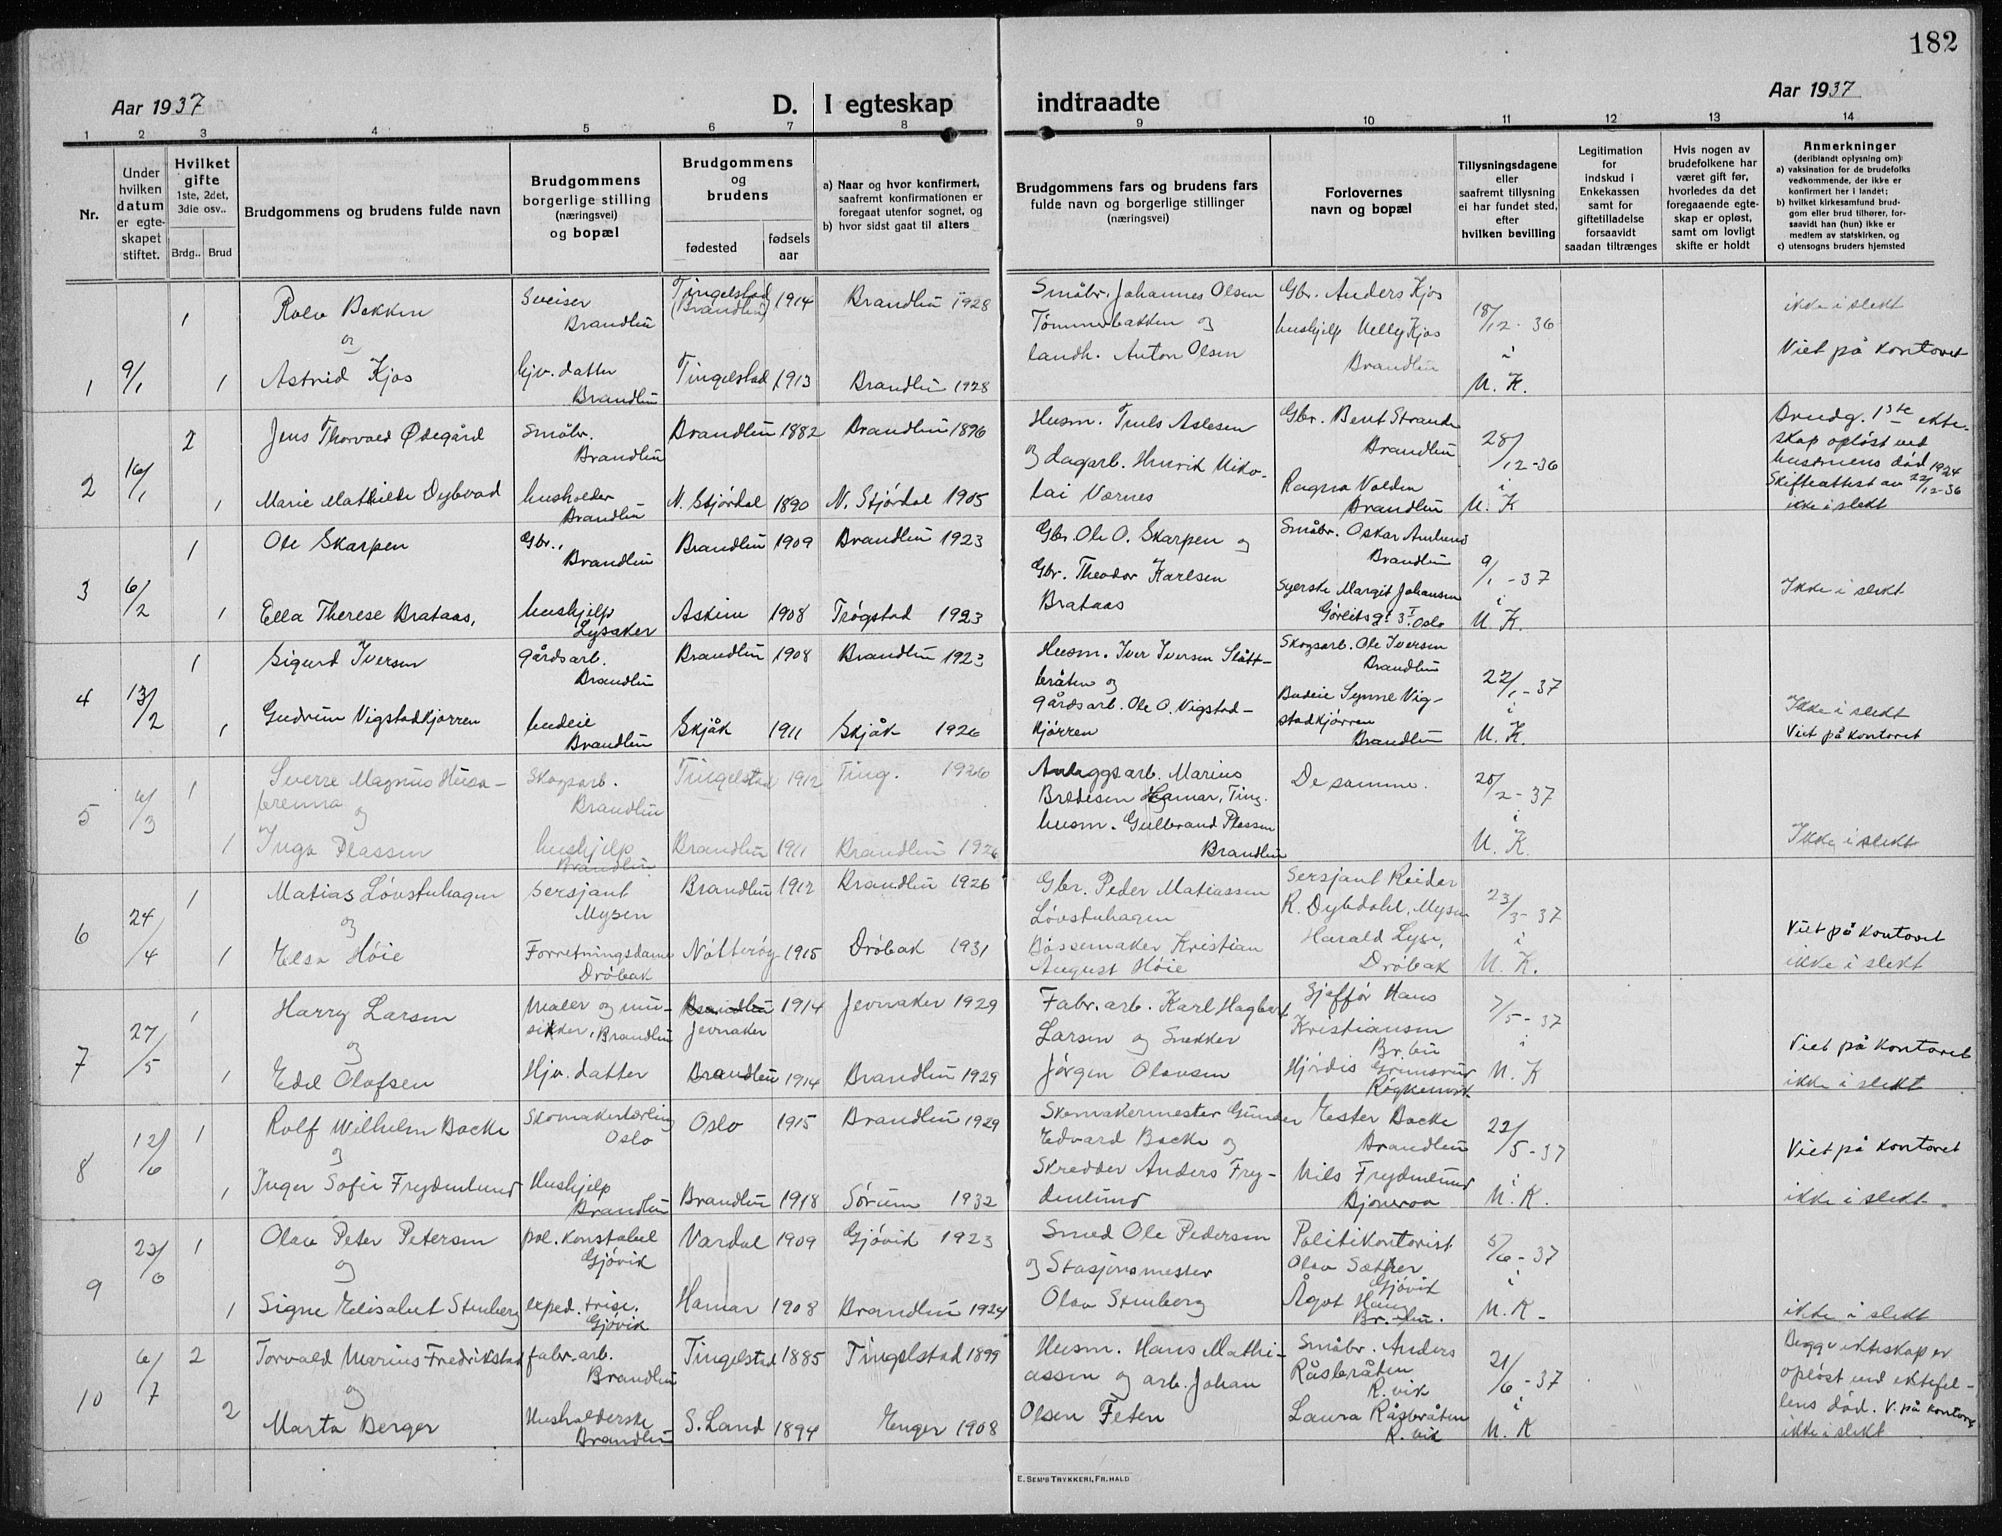 182
Aar 1937
D. I egteskap indtraadte
Aar 1937
1 2 3 4 5 6 7 8 9 10 11 12 13 14
Nr.
Under hvilken datum er egteskapet stiftet.
Hvilket gifte
1ste, 2det, 3die osv..
Brdg.. Brud
Brudgommens og brudens fulde navn
Brudgommens borgerlige stilling (næringsvei) og bopæl
Brudgommens og brudens
fødested
fødsels aar
a) Naar og hvor konfirmert, saafremt konfirmationen er foregaat utenfor sognet, og
b) hvor sidst gaat til alters
Brudgommens fars og brudens fars fulde navn og borgerlige stillinger (næringsvei)
Forlovernes navn og bopæl
Tillysningsdagene eller saafremt tillysning ei har fundet sted, efter hvilken bevilling
Legitimation for indskud i Enkekassen samt for giftetilladelse forsaavidt saadan tiltrænges
Hvis nogen av brudefolkene har været gift før, hvorledes da det foregaaende egteskap er opløst, samt om lovligt skifte er holdt
Anmerkninger
(deriblandt oplysning om):
a) vaksination for de brudefolks vedkommende, der ikke er konfirmert her i landet;
b) hvilket kirkesamfund brudgom eller brud tilhører, forsaavidt han (hun) ikke er medlem av statskirken, og
c) utensogns bruders hjemsted
1 9/1 1 Rolv Bakken Sveiser Brandbu Tingelstad (Brandbu) 1914 Brandbu 1928
og
1 Astrid Kjos hjv. datter Brandbu Tingelstad 1913 Brandbu 1928
Småbr. Johannes Olsen Tømmerbakken og landh. Anton Olsen
Gbr. Anders Kjos hushjelp Nelly Kjos Brandbu
18/12-36 i N. K.
ikke i slekt
Viet på kontoret
2 16/1 2 Jens Thorvald Ødegård Småbr. Brandbu Brandbu 1882 Brandbu 1896
1 Marie Mathilde Dybvad husholder Brandbu N. Stjørdal 1890 N. Stjørdal 1905
Husm. Truls Aslesen og dagarb. Henrik Nikolai Værnes
Gbr. Bent Strande Brandbu
Ragna Volden Brandbu
28/12-36 i N. K
Brudg. 1ste ekteskap opløst ved hustruens død 1924 Skifteattest av 22/12-36 ikke i slekt
3 6/2 1 Ole Skarpen Gbr., Brandbu Brandbu 1909 Brandbu 1923
1 Ella Therese Brataas, hushjelp Lysaker Askim 1908 Trøgstad 1923
Gbr. Ole O. Skarpen og Gbr. Theodor Karlsen Brataas
Småbr. Oskar Amlund Brandbu
Syerske Margit Johansen Gørbitsgt 3I Oslo
9/1-37 i N. K.
Ikke i slekt
4 13/2 1 Sigurd Iversen gårdsarb. Brandbu Brandbu 1908 Brandbu 1923
1 Gudrun Vigstadkjørren budeie Brandbu Skjåk 1911 Skjåk 1926
Husm. Iver Iversen Slåttbråten og gårdsarb. Ole O. Vigstadkjørren
Skogsarb. Ole Iversen Brandbu
Budeie Synne Vigstadkjørren Brandbu
22/1-37 i N. K.
Ikke i slekt
Viet på kontoret
5 6/3 1 Sverre Magnus Husabrenna og Skogsarb. Brandbu Tingelstad 1912 Ting. 1926
1 Inga Plassen hushjelp Brandbu Brandbu 1911 Brandbu 1926
Anleggsarb. Marius Bredesen Hamar, Ting. husm. Gulbrand Plassen Brandbu
De samme.
20/2-37 i N. K.
Ikke i slekt
6 24/4 1 Matias Løvstuhagen Sersjant Mysen Brandbu 1912 Brandbu 1926
og
1 Elsa Høie Forretningsdame Drøbak Nøtterøy 1915 Drøbak 1931
Gbr. Peder Matiassen Løvstuhagen
Bøssemaker Kristian August Høie
Sersjant Reidar R. Dybdahl, Mysen
Harald Lyse, Drøbak
23/3-37 i N. K.
Viet på kontoret
ikke i slekt
7 27/5 1 Harry Larsen Maler og musikker, Brandbu Brandbu Jevnaker 1914 Jevnaker 1929
og
1 Edel Olafsen Hjv. datter Brandbu 1914 Brandbu 1929
Fabr. arb. Karl Hagbart Larsen og Snekker Jørgen Olavsen
Sjåffør Hans Kristiansen Br. bu
Hjørdis Grinsrud Røykenvik
7/5-37 i N. K
Viet på kontoret
ikke i slekt
8 12/6 1 Rolf Wilhelm Backe Skomakerlærling Oslo Oslo 1915 Brandbu 1929
og
1 Inger Sofie Frydenlund Hushjelp Brandbu Brandbu 1918 Sørum 1932
Skomakermester Gunder Edvard Backe og Skredder Anders Frydenlund
Ester Backe Brandbu
Nils Frydenlund Bjoneroa
22/5-37 i N. K.
Viet på kontoret
ikke i slekt
9 22/6 1 Olav Peter Petersen pol. konstabel Gjøvik Vardal 1909 Gjøvik 1923
og
1 Signe Elisabet Stenberg exped. trise. Gjøvik Hamar 1908 Brandbu 1924
Smed Ole Pedersen og Stasjonsmester Olav Stenberg
Politikontorist Olav Sæther Gjøvik
Ågot Haug Br. bu.
5/6-37 i N. K-
ikke i slekt
10 6/7 2 Torvald Marius Fredrikstad fabr. arb. Brandbu Tingelstad 1885 Tingelstad 1899
og
2 Marta Berger Husholderske Brandbu S. Land 1894 Enger 1908
Husm. Hans Mathiassen og arb. Johan Olsen Feten
Småbr. Anders Råsbråten R. vik
Laura Råsbråten R. vik
21/6-37 i N. K
Begge ekteskap er opløst ved ektefellens død. V. på kontoret
ikke i slekt
E. SEM'S TRYKKERI, FR.HALD